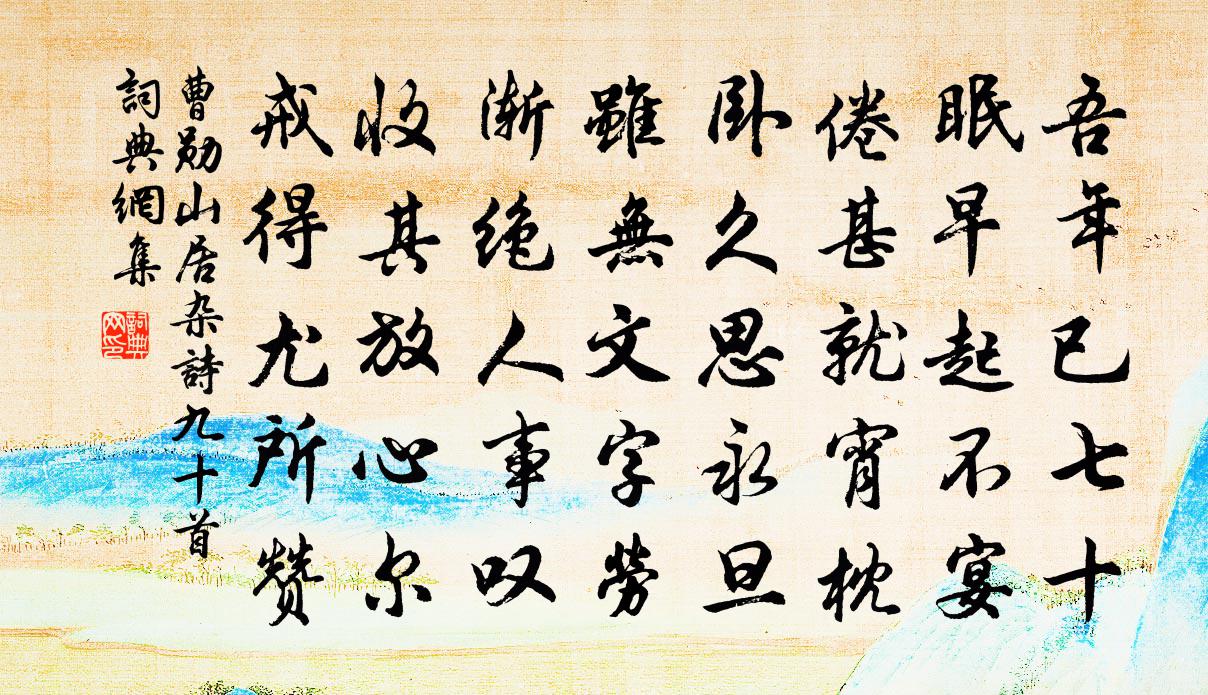 吾年已七十
眠早起不宴
倦甚就宵枕
卧久思永旦
雖無文字勞
渐絶人事叹
收其放心尔
戒得尤所赞
曹勋山居杂詩九十首
詞典網集
詞典网印